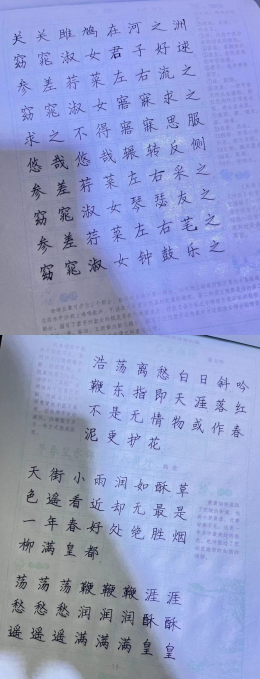 关关雎鸠在河之洲
窈窕淑女君子好逑
参差荇菜左右流之
窈窕淑女寤寐求之
求之不得寤寐思服
悠哉悠哉辗转反侧
参差荇菜左右采之
窈窕淑女琴瑟友之
参差荇菜左右芼之
窈窕淑女钟鼓乐之
浩荡离愁白日斜吟
鞭东指即天涯落红
不是无情物或作春
泥更护花
天街小雨润如酥草
色遥看近却无最是
一年春好处绝胜烟
柳满皇都
荡荡荡鞭鞭鞭涯涯
愁愁愁润润润酥酥
遥遥遥满满满皇皇